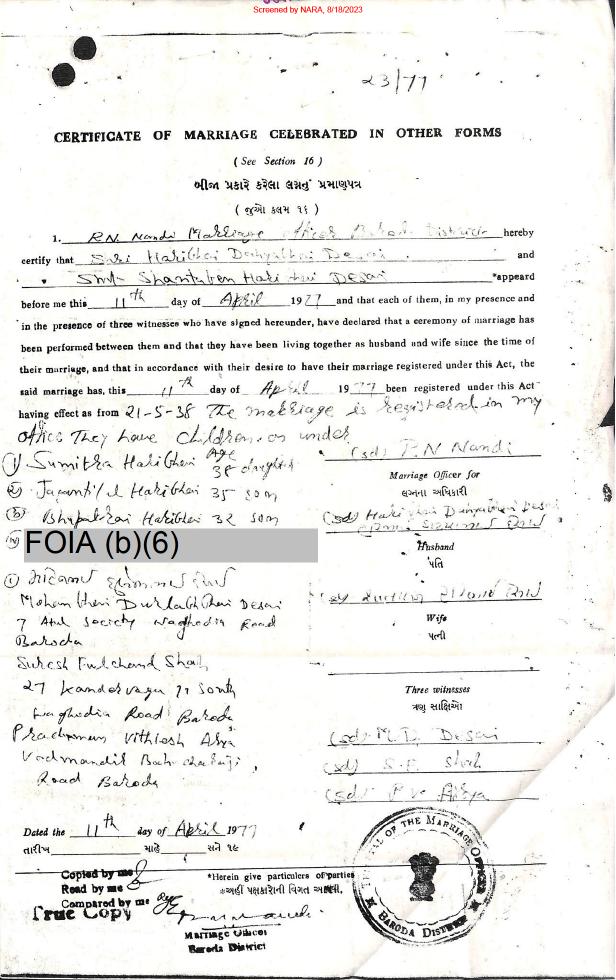 Screened by NARA, 8/18/2023
23/77
CERTIFICATE OF MARRIAGE CELEBRATED IN OTHER FORMS
( See Section 16 )
બીજા પ્રકારે કરેલા લગ્નનું પ્રમાણપત્ર
( જુઓ કલમ ૧૬ )
1. P.N. Nandi Marriage officer Baroda District hereby
certify that Shri Haribhai Dahyabhai Desai and
Smt. Shantaben Haribhai Desai *appeard
before me this 11th day of April 1977 and that each of them, in my presence and
in the presence of three witnesses who have signed hereunder, have declared that a ceremony of marriage has
been performed between them and that they have been living together as husband and wife since the time of
their marriage, and that in accordance with their desire to have their marriage registered under this Act, the
said marriage has, this 11th day of April 1977 been registered under this Act
having effect as from 21-5-38 The marriage is registered in my
office They have children as under
Age
(1) Sumitra Haribhai 38 daughter
(sd) P.N Nandi
Marriage Officer for
લગ્નના અધિકારી
(2) Jayantilal Haribhai 35 son
(3) Bhupatrai Haribhai 32 son
(sd) Haribhai Dahyabhai Desai
(4) FOIA (b)(6)
Husband
પતિ
(1)
Mohanbhai Durlabhbhai Desai
7 Atul Society Waghodia Road
Baroda
Wife
પત્ની
Suresh Fulchand Shah
27 South
Waghodia Road Baroda
Three witnesses
ત્રણ સાક્ષિઓ
Vithlesh Arya
Road Baroda
(sd) M.D. Desai
(sd) S.F. Shah
(sd) P.V. Arya
Dated the 11th day of April 1977
તારીખ માહે સને ૧૯
Copied by me
Read by me
Compared by me
True Copy
*Herein give particulers of parties
*અહીં પક્ષકારોની વિગત આપવી.
Marriage Officer
Baroda District
THE SEAL OF THE MARRIAGE OFFICER
BARODA DISTRICT